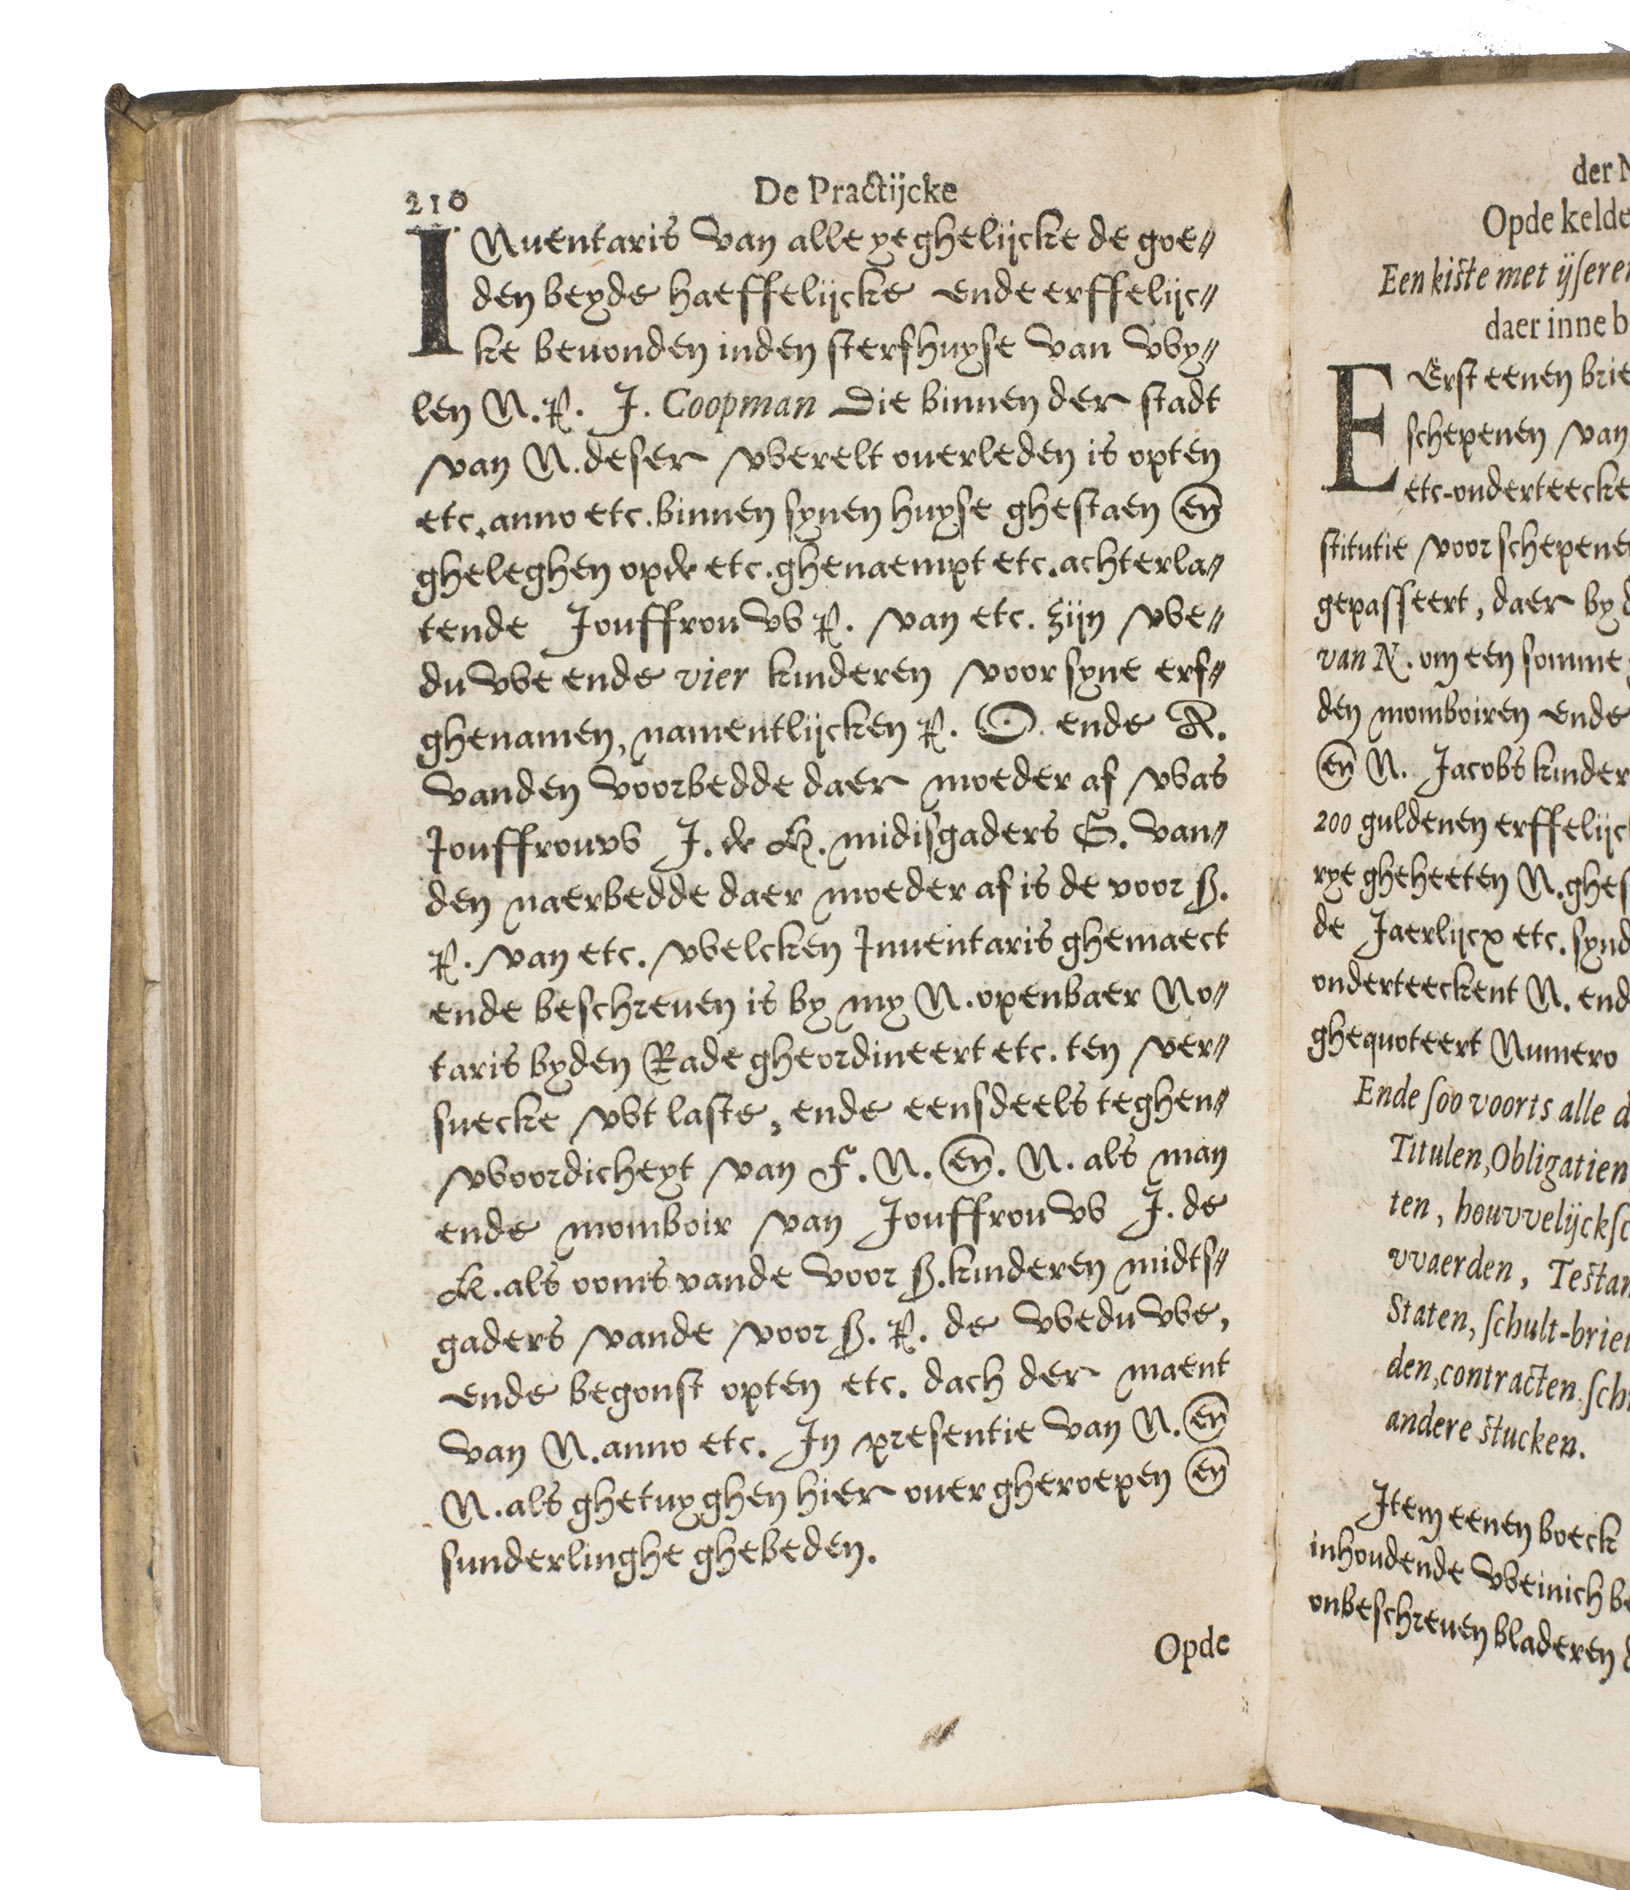 210
De Practijcke
INuentaris van alle yeghelijcke de goe⸗
den beyde haeffelijcke ende erffelijc⸗
ke beuonden inden sterfhuyse van wy⸗
len N. R. J. Coopman die binnen der stadt
van N. deser werelt ouerleden is opten
etc. anno etc. binnen synen huyse ghestaen eñ
gheleghen opde etc. ghenaempt etc. achterla⸗
tende Jouffrouw R. van etc. zijn we⸗
duwe ende vier kinderen voor syne erf⸗
ghenamen, namentlijcken R. O. ende A.
vanden voorbedde daer moeder af was
Jouffrouw J. de H. midisgaders S. van⸗
den naerbedde daer moeder af is de voor ß.
R. van etc. welcken Inuentaris ghemaect
ende beschreuen is by my N. openbaer No⸗
taris byden Rade gheordineert etc. ten ver⸗
suecke wt laste, ende eensdeels teghen⸗
woordicheyt van F. N. eñ. N. als man
ende momboir van Jouffrouw J. de
K. als ooms vande voor ß. kinderen midts⸗
gaders vande voor ß. R. de weduwe,
ende begonst opten etc. dach der maent
van N. anno etc. In presentie van N. eñ
N. als ghetuyghen hier ouer gheroepen eñ
sunderlinghe ghebeden.
Opde
der
Opde kelde
Een kiste met ijseren
daer inne b
EErst eenen brie
schepenen van
etc. onderteecke
stitutie voor schepene
gepasseert, daer by d
van N. om een somme
den momboiren ende
eñ N. Jacobs kinder
200 guldenen erffelijc
rye gheheeten N. ghes
de Jaerlijcx etc. synd
onderteeckent N. end
ghequoteert Numero
Ende soo voorts alle d
Titulen, Obligatien
ten, houvvelijcksc
vvaerden, Testam
Staten, schult-brie
den, contracten, sch
andere stucken.
Item eenen boeck
inhoudende weinich be
onbeschreuen bladeren